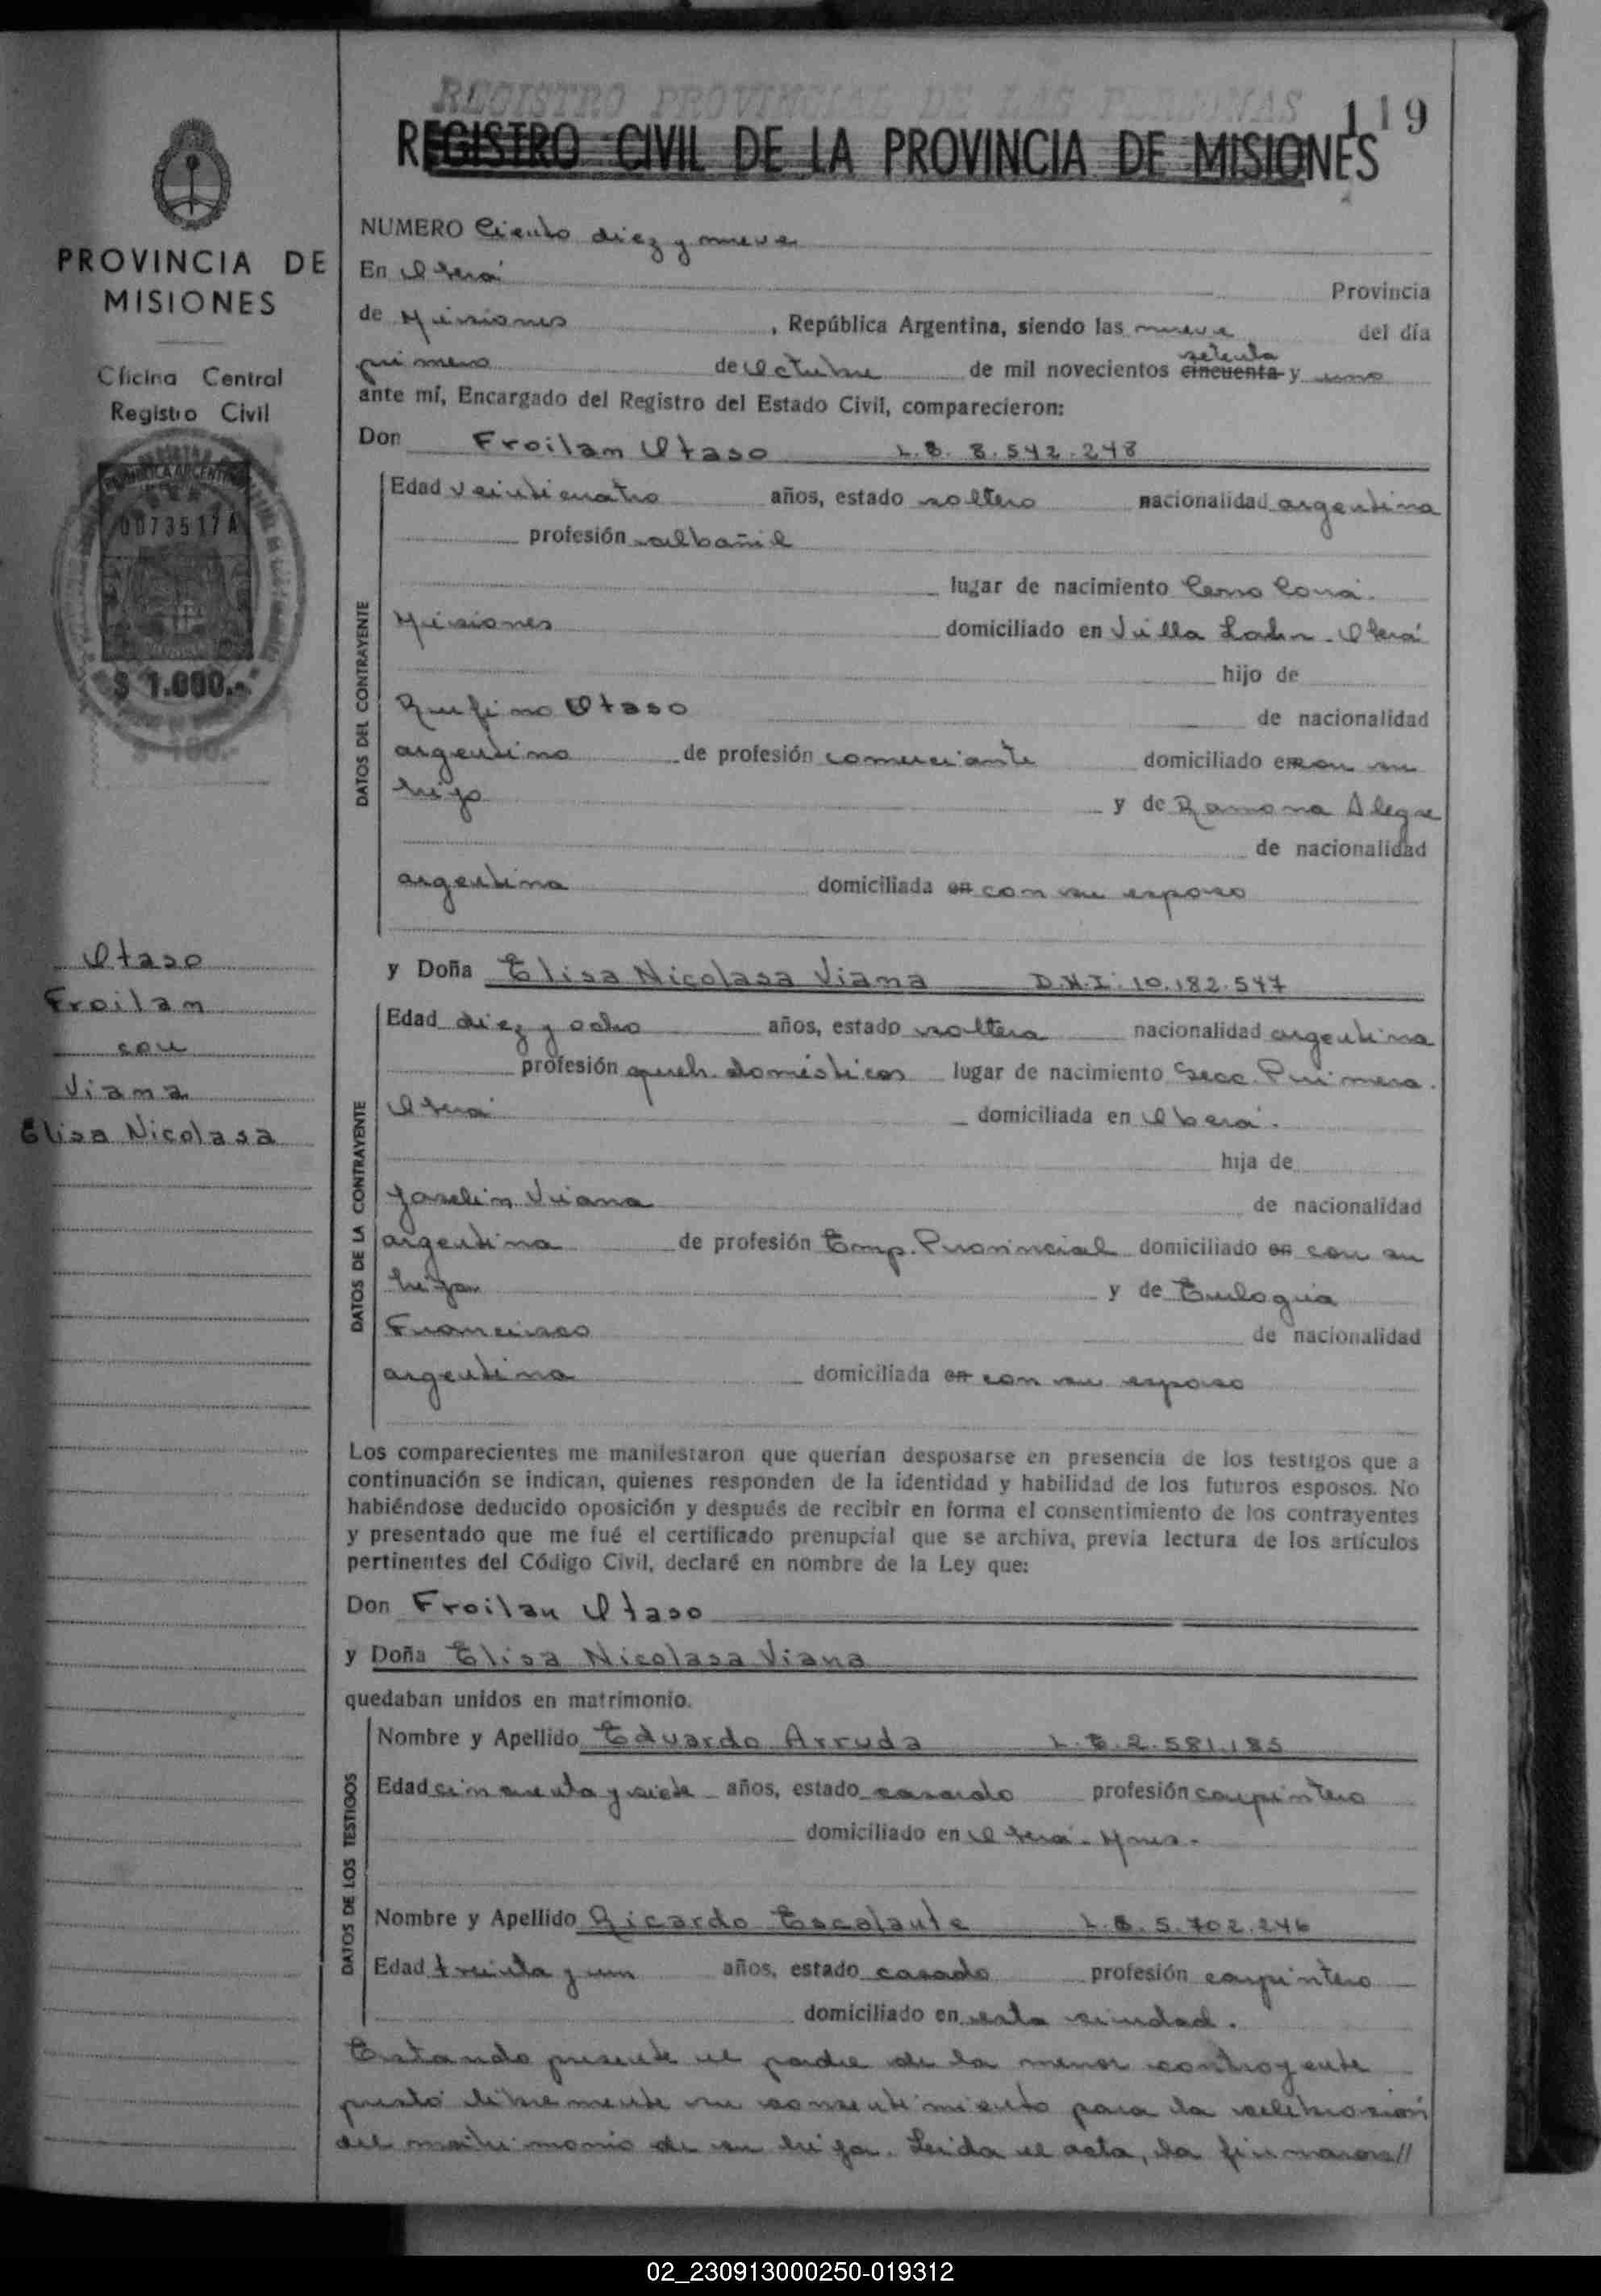 REGISTRO PROVINCIAL DE LAS PERSONAS
119
REGISTRO CIVIL DE LA PROVINCIA DE MISIONES
PROVINCIA DE
MISIONES
Oficina Central
Registro Civil
REPUBLICA ARGENTINA
0073517A
$ 1.000.-
Otaso
Froilan
con
Viana
Elisa Nicolasa
NUMERO Ciento diez y nueve
En Oberá Provincia
de Misiones, República Argentina, siendo las nueve del día
setenta
primero de Octubre de mil novecientos cincuenta y uno
ante mí, Encargado del Registro del Estado Civil, comparecieron:
Don Froilan Otaso L.E. 8.542.248
DATOS DEL CONTRAYENTE
Edad veinticuatro años, estado soltero nacionalidad argentina
profesión albañil
lugar de nacimiento Cerro Corá.
Misiones domiciliado en Villa . Oberá
hijo de
Rufino Otaso de nacionalidad
argentino de profesión comerciante domiciliado en con su
hijo y de Ramona Alegre
de nacionalidad
argentina domiciliada en con su esposo
y Doña Elisa Nicolasa Viana D.N.I. 10.182.547
DATOS DE LA CONTRAYENTE
Edad diez y ocho años, estado soltera nacionalidad argentina
profesión queh. domésticos lugar de nacimiento Secc. Primera.
Oberá domiciliada en Oberá.
hija de
Joselin Viana de nacionalidad
argentina de profesión Emp. Provincial domiciliado en con su
hija y de Eulogia
Francisco de nacionalidad
argentina domiciliada en con su esposo
Los comparecientes me manifestaron que querían desposarse en presencia de los testigos que a
continuación se indican, quienes responden de la identidad y habilidad de los futuros esposos. No
habiéndose deducido oposición y después de recibir en forma el consentimiento de los contrayentes
y presentado que me fué el certificado prenupcial que se archiva, previa lectura de los artículos
pertinentes del Código Civil, declaré en nombre de la Ley que:
Don Froilan Otaso
y Doña Elisa Nicolasa Viana
quedaban unidos en matrimonio.
DATOS DE LOS TESTIGOS
Nombre y Apellido Eduardo Arruda L.E. 2.581.185
Edad cincuenta y siete años, estado casado profesión carpintero
domiciliado en Oberá - Mnes.
Nombre y Apellido Ricardo Escalante L.E. 5.702.246
Edad treinta y un años, estado casado profesión carpintero
domiciliado en esta ciudad.
Estando presente el padre de la menor contrayente
prestó libremente su consentimiento para la celebración
del matrimonio de su hija. Leída el acta, la firmaron//
02_230913000250-019312